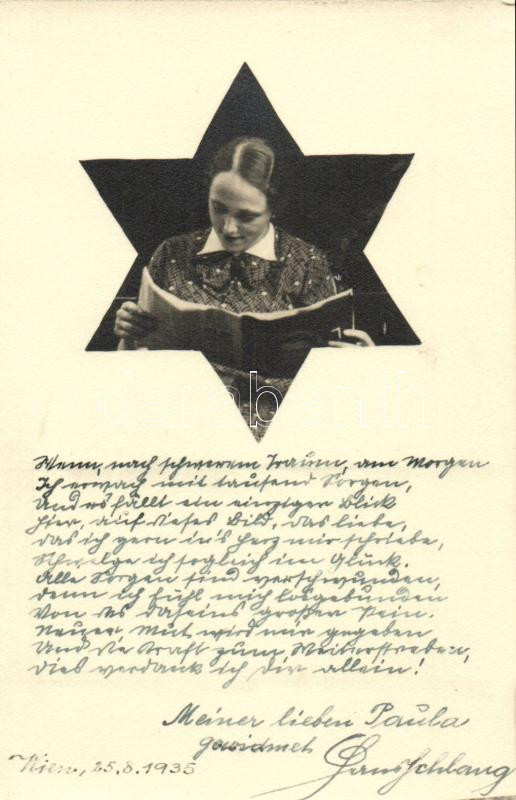 Wenn, nach schwerem Traum, am Morgen
Ich erwach mit tausend Sorgen,
Und es fällt ein einziger Blick
Hier, auf dieses Bild, das liebe,
das ich gern in's Herz mir schriebe,
Schwelge ich sogleich im Glück.
Alle Sorgen sind verschwunden,
denn ich fühl mich losgebunden
Von des Daseins großer Pein.
Neuer Mut wird mir gegeben
Und die Kraft zum Weiterstreben,
dies verdank ich Dir allein!
Meiner lieben Paula
gewidmet
Hans Schlang
Wien, 25.8.1935
darabanth